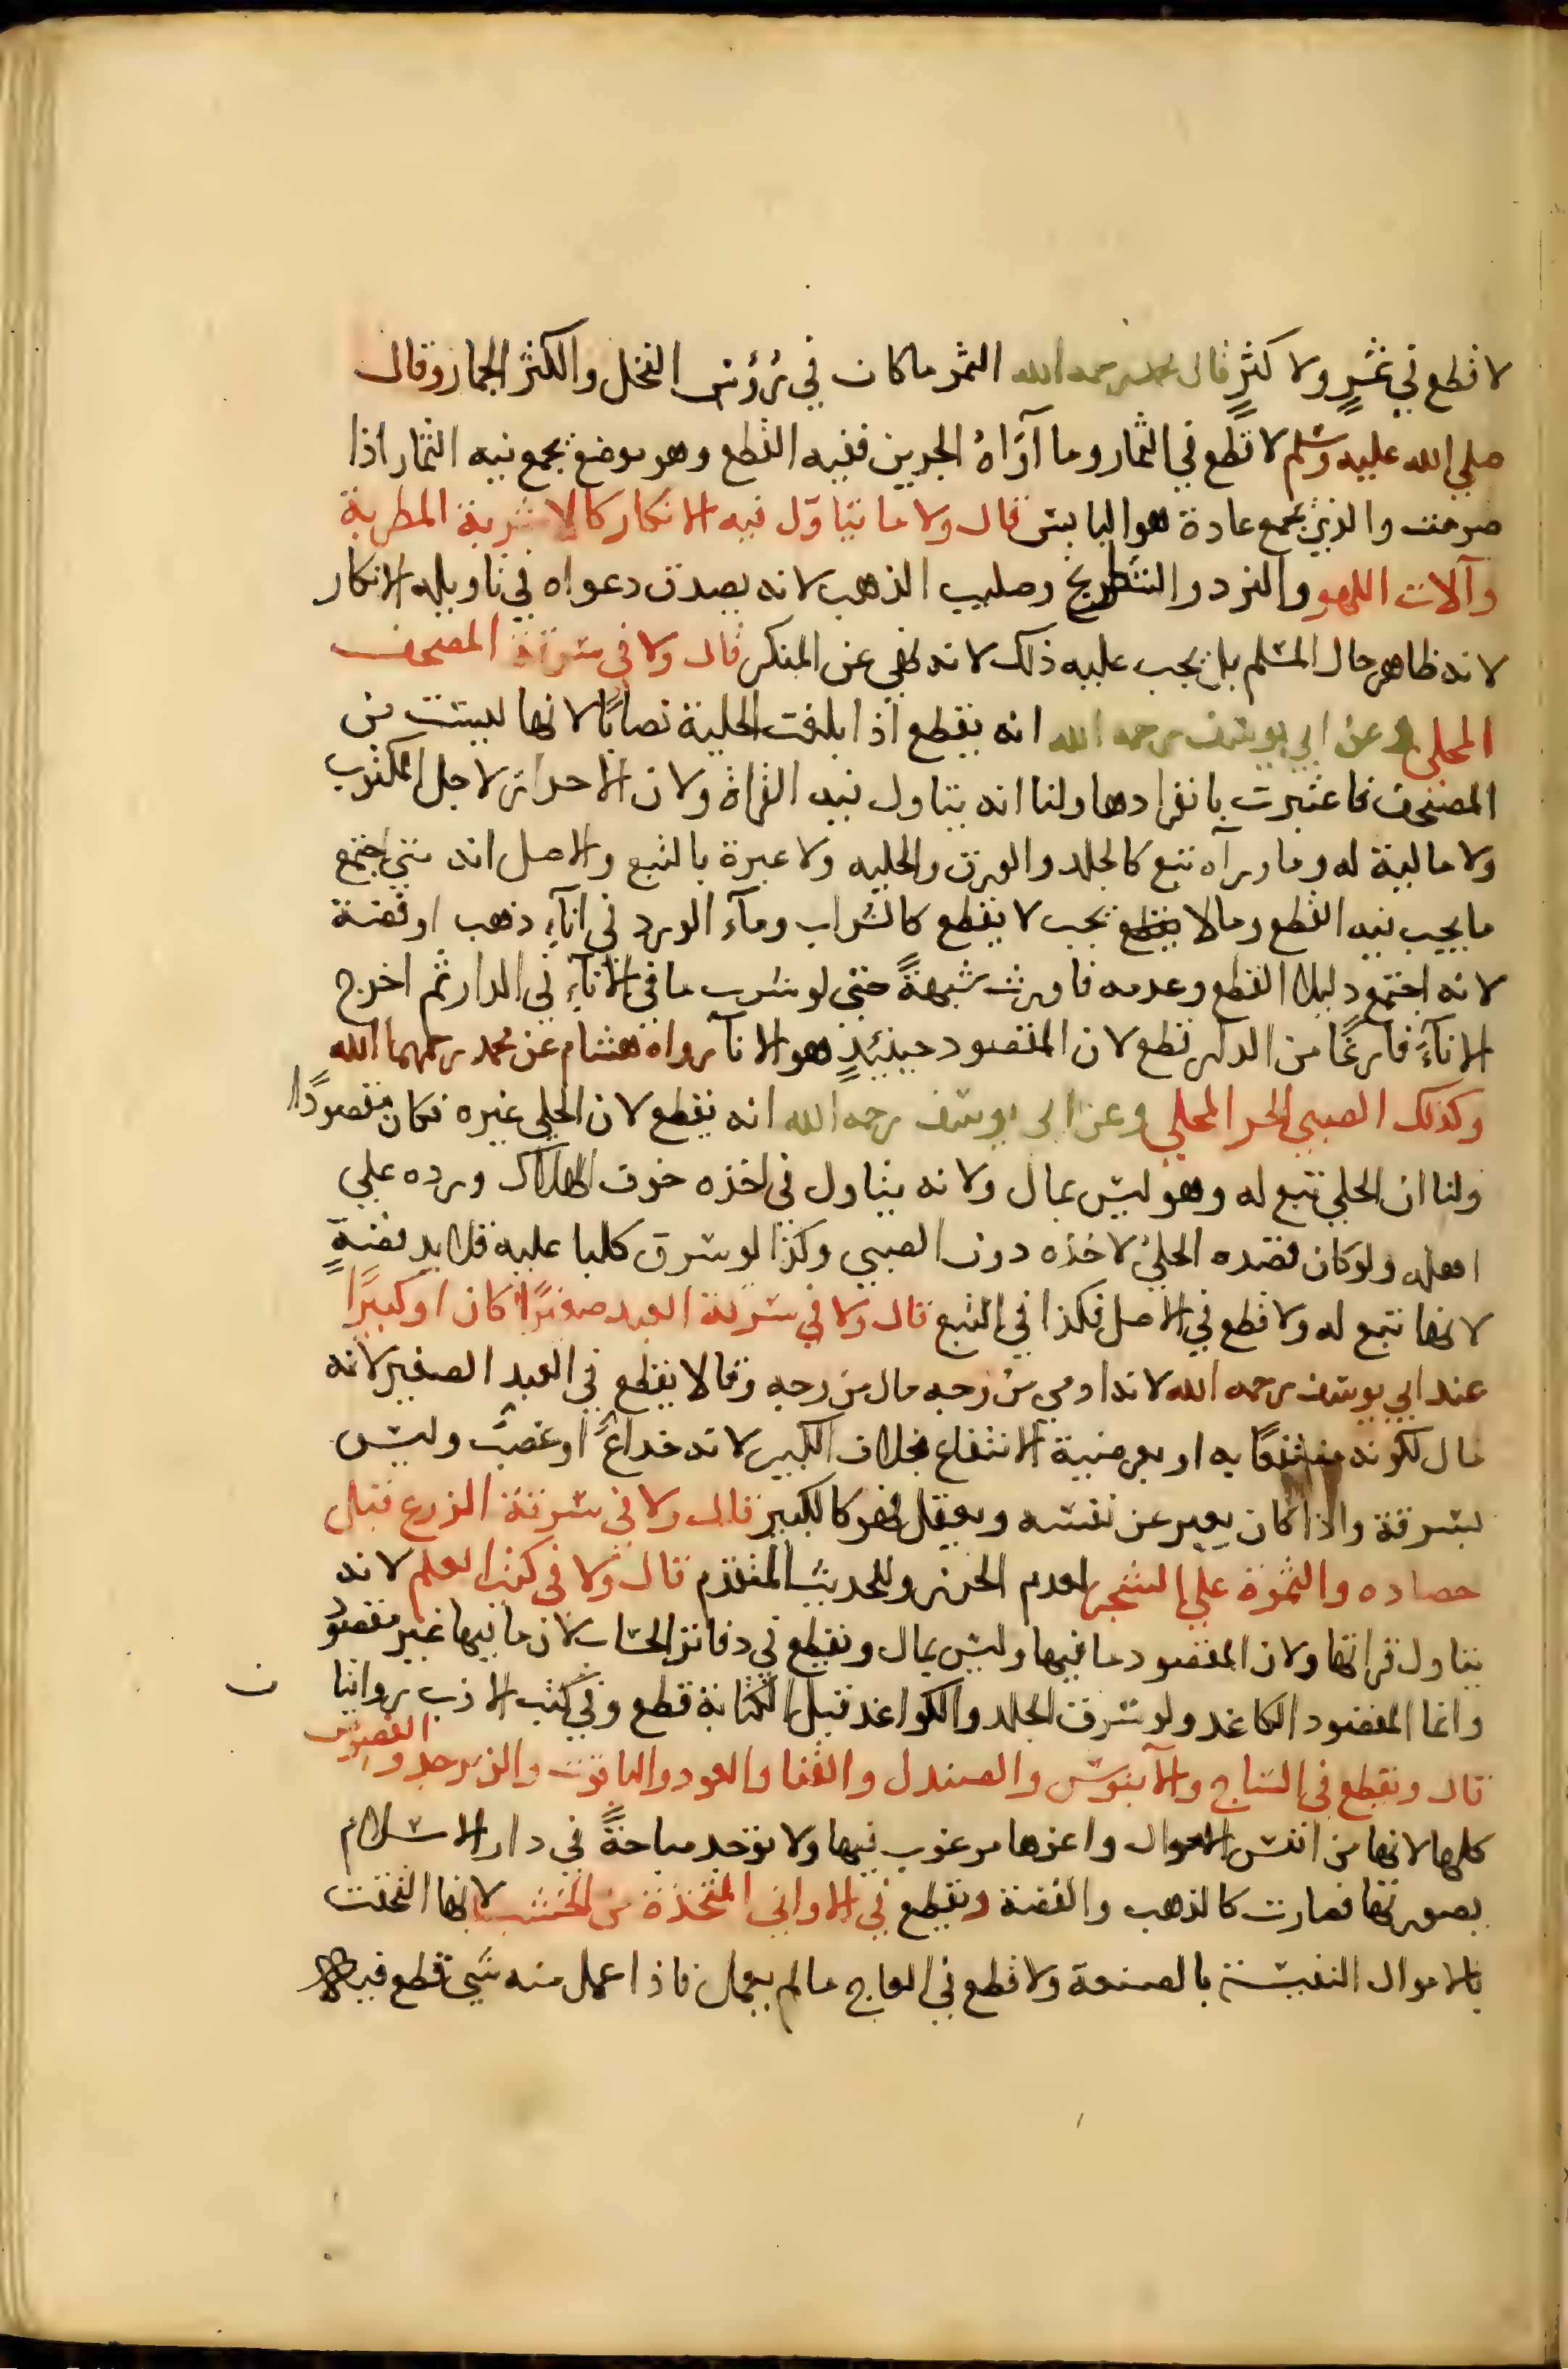 لا قطع في ثمر ولا كثر قال محمد رحمه الله الثمر ما كان في رؤس النخل والكثر الجمار وقال
صلي الله عليه وسلم لا قطع في الثمار وما آواه الجرين ففيه القطع وهو موضع يجمع فيه الثمار اذا
صرمت والذي يجمع عادة هو اليابس قال ولا ما يتاول فيه الانكار كالاشربة المطربة
وآلات اللهو والنرد والشطرنج وصليب الذهب لانه يصدق دعواه في تاويله الانكار
لانه ظاهر حال المسلم بل يجب عليه ذلك لانه نهي عن المنكر قال ولا في سرقة المصحف
المحلي وعن ابي يوسف رحمه الله انه يقطع اذا بلغت الحلية نصابًا لانها ليست من
المصحف فاعتبرت بانفرادها ولنا انه يتاول فيه القراة ولان الاحراز لاجل المكتوب
ولا مالية له وما ورآه تبع كالجلد والورق والحليه ولا عبرة بالتبع والاصل انه متي اجتمع
ما يجب فيه القطع وما لا يجب لا يقطع كالشراب ومآء الورد في انآء ذهب او فضة
لانه اجتمع دليلا القطع وعدمه فاورث شبهةً حتى لو شرب ما في الانآء في الدار ثم اخرج
الانآء فارغًا من الدار قطع لان المقصود حينئذٍ هو الانآ رواه هشام عن محمد رحمهما الله
وكذلك الصبي الحر المحلي وعن ابي يوسف رحمه الله انه يقطع لان الحلي غيره فكان مقصودًا
ولنا ان الحلي تبع له وهو ليس بمال ولانه يتاول في اخذه خوف الهلاك ورده علي
اهله ولو كان قصده الحلي لاخذه دون الصبي وكذا لو سرق كلبا عليه قلايد فضةٍ
لانها تبع له ولا قطع في الاصل فكذا في التبع قال ولا في سرقة العبد صغيرًا كان او كبيرًا
عند ابي يوسف رحمه الله لانه ادمي من وجه مال من وجه وقالا يقطع في العبد الصغير لانه
مال لكونه منتفعًا به او بعرضية الانتفاع بخلاف الكبير لانه خداع او غصب وليس
بسرقة واذا كان يعبر عن نفسه ويعقل فهو كالكبير قال ولا في سرقة الزرع قبل
حصاده والثمرة علي الشجر لعدم الحرز وللحديث المتقدم قال ولا في كتب العلم لانه
يتاول قرائتها ولان المقصود ما فيها وليس بمال ويقطع في دفاتر الحساب لان ما فيها غير مقصود
وانما المقصود الكاغد ولو سرق الجلد والكواغد قبل الكتابة قطع وفي كتب الادب روايتا
ن
قال ويقطع في الساج والآبنوس والصندل والقنا والعود والياقوت والزبرجد والفصوص
كلها لانها من انفس الاموال واعزها مرغوب فيها ولا يوجد مباحةً في دار الاسلام
بصورتها فصارت كالذهب والفضة ويقطع في الاواني المتخذة من الخشب لانها التحقت
بالاموال النفيسة بالصنعة ولا قطع في العاج ما لم يعمل فاذا عمل منه شي قطع فيه